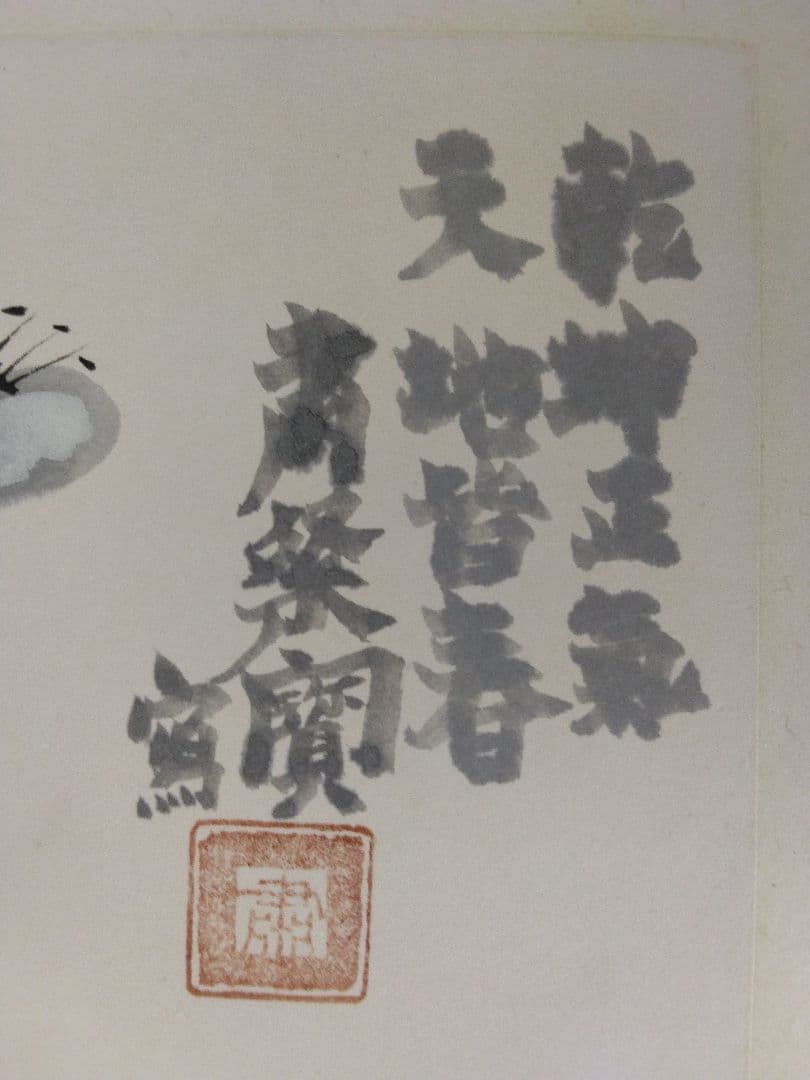 乾坤正氣
天地皆春
榮寶
寫